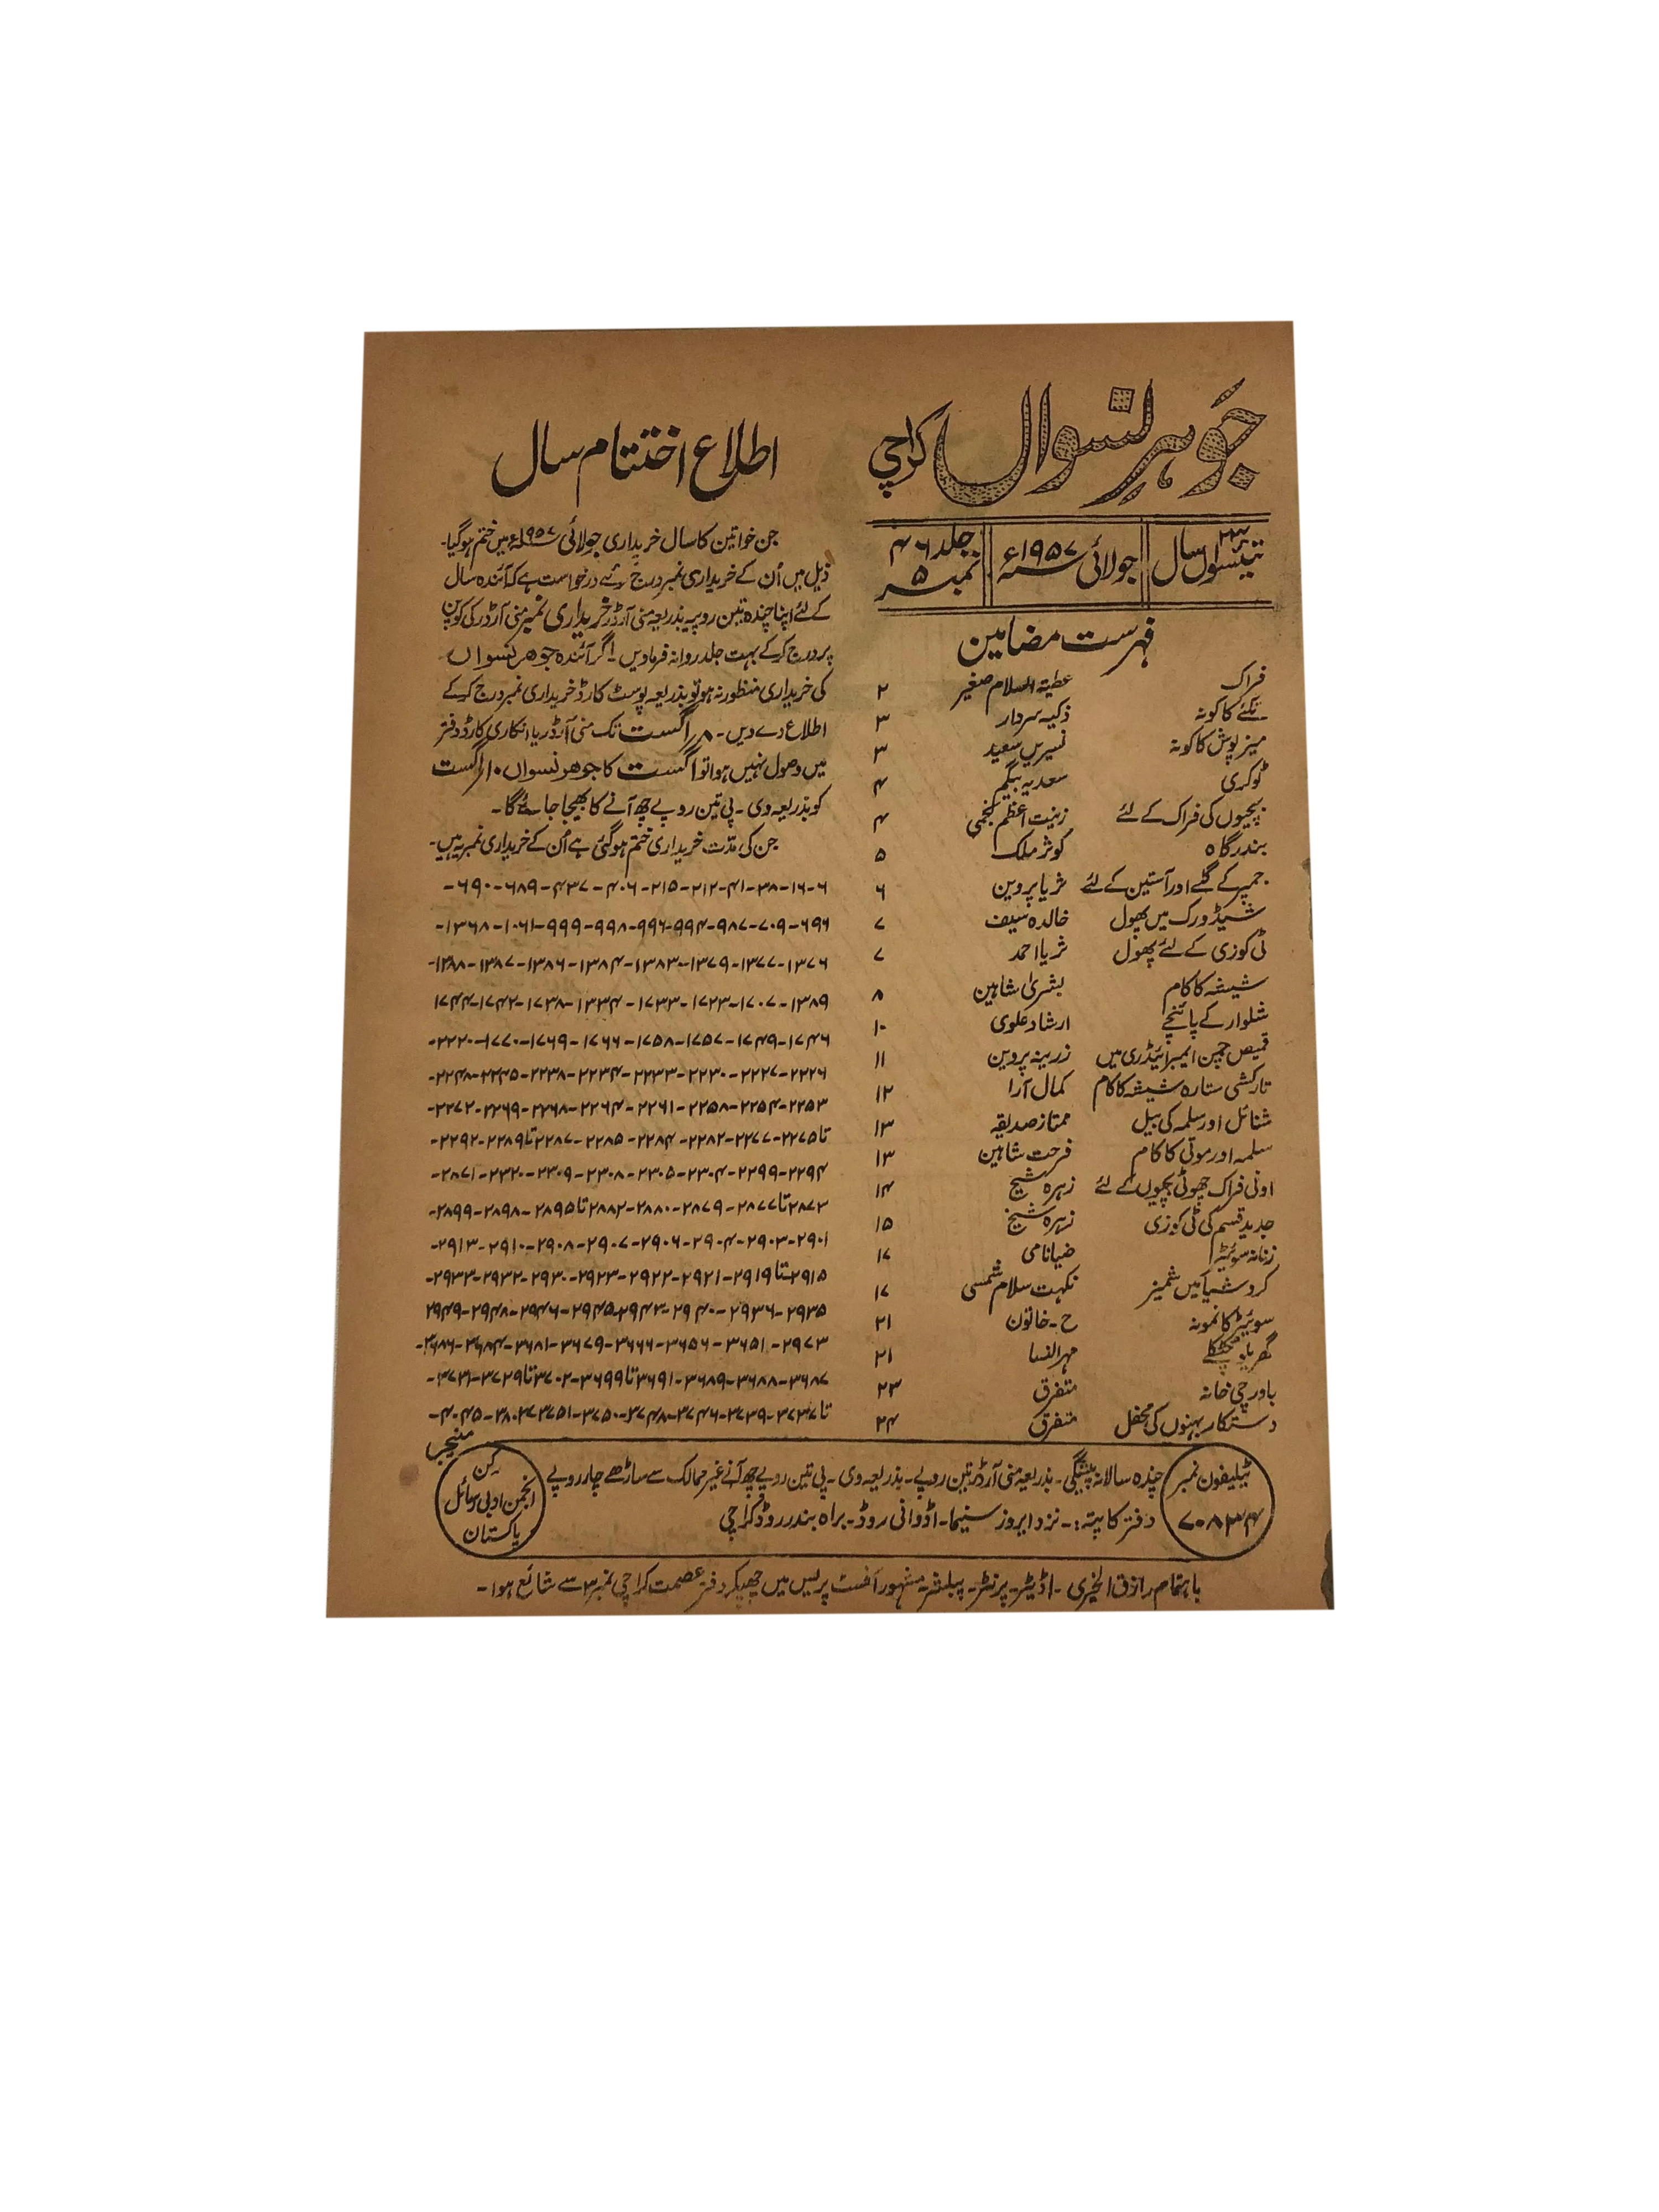 جوہر نسواں کراچی
۲۳ تیئسواں سال
جولائی ۱۹۵۷ء
جلد ۴۶
نمبر ۵
فہرست مضامین
فراک عطیۃ السلام صغیر ۲
تکئے کا کونہ ذکیہ سردار ۳
میزپوش کا کونہ نسیرین سعید ۳
ٹوکری سعدیہ بیگم ۴
بچیوں کی فراک کے لئے زینت اعظم ۴
بندرگاہ کوثر ملک ۵
جمپر کے گلے اور آستین کے لئے ثریا پروین ۶
شیڈ ورک میں پھول خالدہ سیف ۷
ٹی کوزی کے لئے پھول ثریا احمد ۷
شیشہ کا کام بشریٰ شاہین ۸
شلوار کے پائنچے ارشاد علوی ۱۰
قمیص چین ایمبرائیڈری میں زرینہ پروین ۱۱
تارکشی ستارہ شیشہ کا کام کمال آرا ۱۲
شنائل اور سلمہ کی بیل ممتاز صدیقہ ۱۳
سلمہ اور موتی کا کام فرحت شاہین ۱۳
اونی فراک چھوٹی بچیوں کے لئے زہرہ شیخ ۱۴
جدید قسم کی ٹی کوزی زہرہ شیخ ۱۵
زنانہ سوئیٹر ضیا نامی ۱۷
کروشیا کیس شمیز نکہت سلام شمسی ۱۷
سویٹر کا نمونہ ح۔ خاتون ۲۱
گھریلو چٹکلے مہرالنسا ۲۱
باورچی خانہ متفرق ۲۳
دستکار بہنوں کی محفل متفرق ۲۴
اطلاع اختتام سال
جن خواتین کا سال خریداری جولائی ۱۹۵۷ء میں ختم ہوگیا۔
ذیل میں اُن کے خریداری نمبر درج ہوئے درخواست ہے کہ آئندہ سال
کے لئے اپنا چندہ تین روپیہ بذریعہ منی آرڈر خریداری نمبر منی آرڈر کی کوپن
پر درج کرکے بہت جلد روانہ فرمادیں۔ اگر آئندہ جوھر نسواں
کی خریداری منظور نہ ہو تو بذریعہ پوسٹ کارڈ خریداری نمبر درج کرکے
اطلاع دے دیں۔ ۸ر اگست تک منی آرڈر یا انکاری کارڈ دفتر
میں وصول نہیں ہوا تو اگست کا جوھر نسواں ۱۰ر اگست
کو بذریعہ وی۔ پی تین روپے چھ آنے کا بھیجا جائے گا۔
جن کی مدّت خریداری ختم ہوگئی ہے اُن کے خریداری نمبر یہ ہیں۔
۶-۱۶-۳۸-۴۱-۲۱۲-۲۱۵-۴۰۶-۴۳۷-۶۸۹-۶۹۰-
۶۹۶-۷۰۹-۹۸۷-۹۹۴-۹۹۶-۹۹۸-۹۹۹-۱۰۶۱-۱۳۶۸-
۱۳۷۶-۱۳۷۷-۱۳۷۹-۱۳۸۳-۱۳۸۴-۱۳۸۶-۱۳۸۷-۱۳۸۸-
۱۳۸۹-۱۷۰۷-۱۷۲۳-۱۷۳۳-۱۳۳۴-۱۷۳۸-۱۷۴۲-۱۷۴۴
۱۷۴۶-۱۷۴۹-۱۷۵۷-۱۷۵۸-۱۷۶۶-۱۷۶۹-۱۷۷۰-۲۲۲۰-
۲۲۲۶-۲۲۲۷-۲۲۳۰-۲۲۳۳-۲۲۳۴-۲۲۳۸-۲۲۴۵-۲۲۴۸-
۲۲۵۳-۲۲۵۴-۲۲۵۸-۲۲۶۱-۲۲۶۴-۲۲۶۸-۲۲۶۹-۲۲۷۲-
تا ۲۲۷۵-۲۲۷۷-۲۲۸۲-۲۲۸۴-۲۲۸۵-۲۲۸۷ تا ۲۲۸۹-۲۲۹۲-
۲۲۹۴-۲۲۹۹-۲۳۰۴-۲۳۰۵-۲۳۰۸-۲۳۰۹-۲۳۲۰-۲۸۷۱-
۲۸۷۳ تا ۲۸۷۷-۲۸۷۹-۲۸۸۰-۲۸۸۲ تا ۲۸۹۵-۲۸۹۸-۲۸۹۹-
۲۹۰۱-۲۹۰۳-۲۹۰۴-۲۹۰۶-۲۹۰۷-۲۹۰۸-۲۹۱۰-۲۹۱۳-
۲۹۱۵ تا ۲۹۱۹-۲۹۲۱-۲۹۲۲-۲۹۲۳-۲۹۳۰-۲۹۳۲-۲۹۳۳-
۲۹۳۵-۲۹۳۶-۲۹۴۰-۲۹۴۳-۲۹۴۵-۲۹۴۶-۲۹۴۸-۲۹۴۹
۲۹۷۳-۳۶۵۱-۳۶۵۶-۳۶۶۶-۳۶۷۹-۳۶۸۱-۳۶۸۴-۳۶۸۶-
۳۶۸۷-۳۶۸۸-۳۶۸۹-۳۶۹۱ تا ۳۶۹۹-۳۷۰۲ تا ۳۷۲۹-۳۷۳۱-
تا ۳۷۳۷-۳۷۳۹-۳۷۴۶-۳۷۴۸-۳۷۵۰-۳۷۵۱-۴۰۴۵-
منیجر
ٹیلیفون نمبر
۷۰۸۳۴
چندہ سالانہ پیشگی۔ بذریعہ منی آرڈر تین روپے۔ بذریعہ وی۔ پی تین روپے چھ آنے غیر ممالک سے ساڑھے چار روپے
دفتر کا پتہ:۔ نزد ایروز سنیما۔ اڈوانی روڈ۔ براہ بندر روڈ کراچی
رکن
انجمن ادبی رسائل
پاکستان
باہتمام رازق الخیری۔ اڈیٹر۔ پرنٹر۔ پبلشر۔ مشہور آفسٹ پریس میں چھپکر دفتر عصمت کراچی نمبر ۳ سے شائع ہوا۔